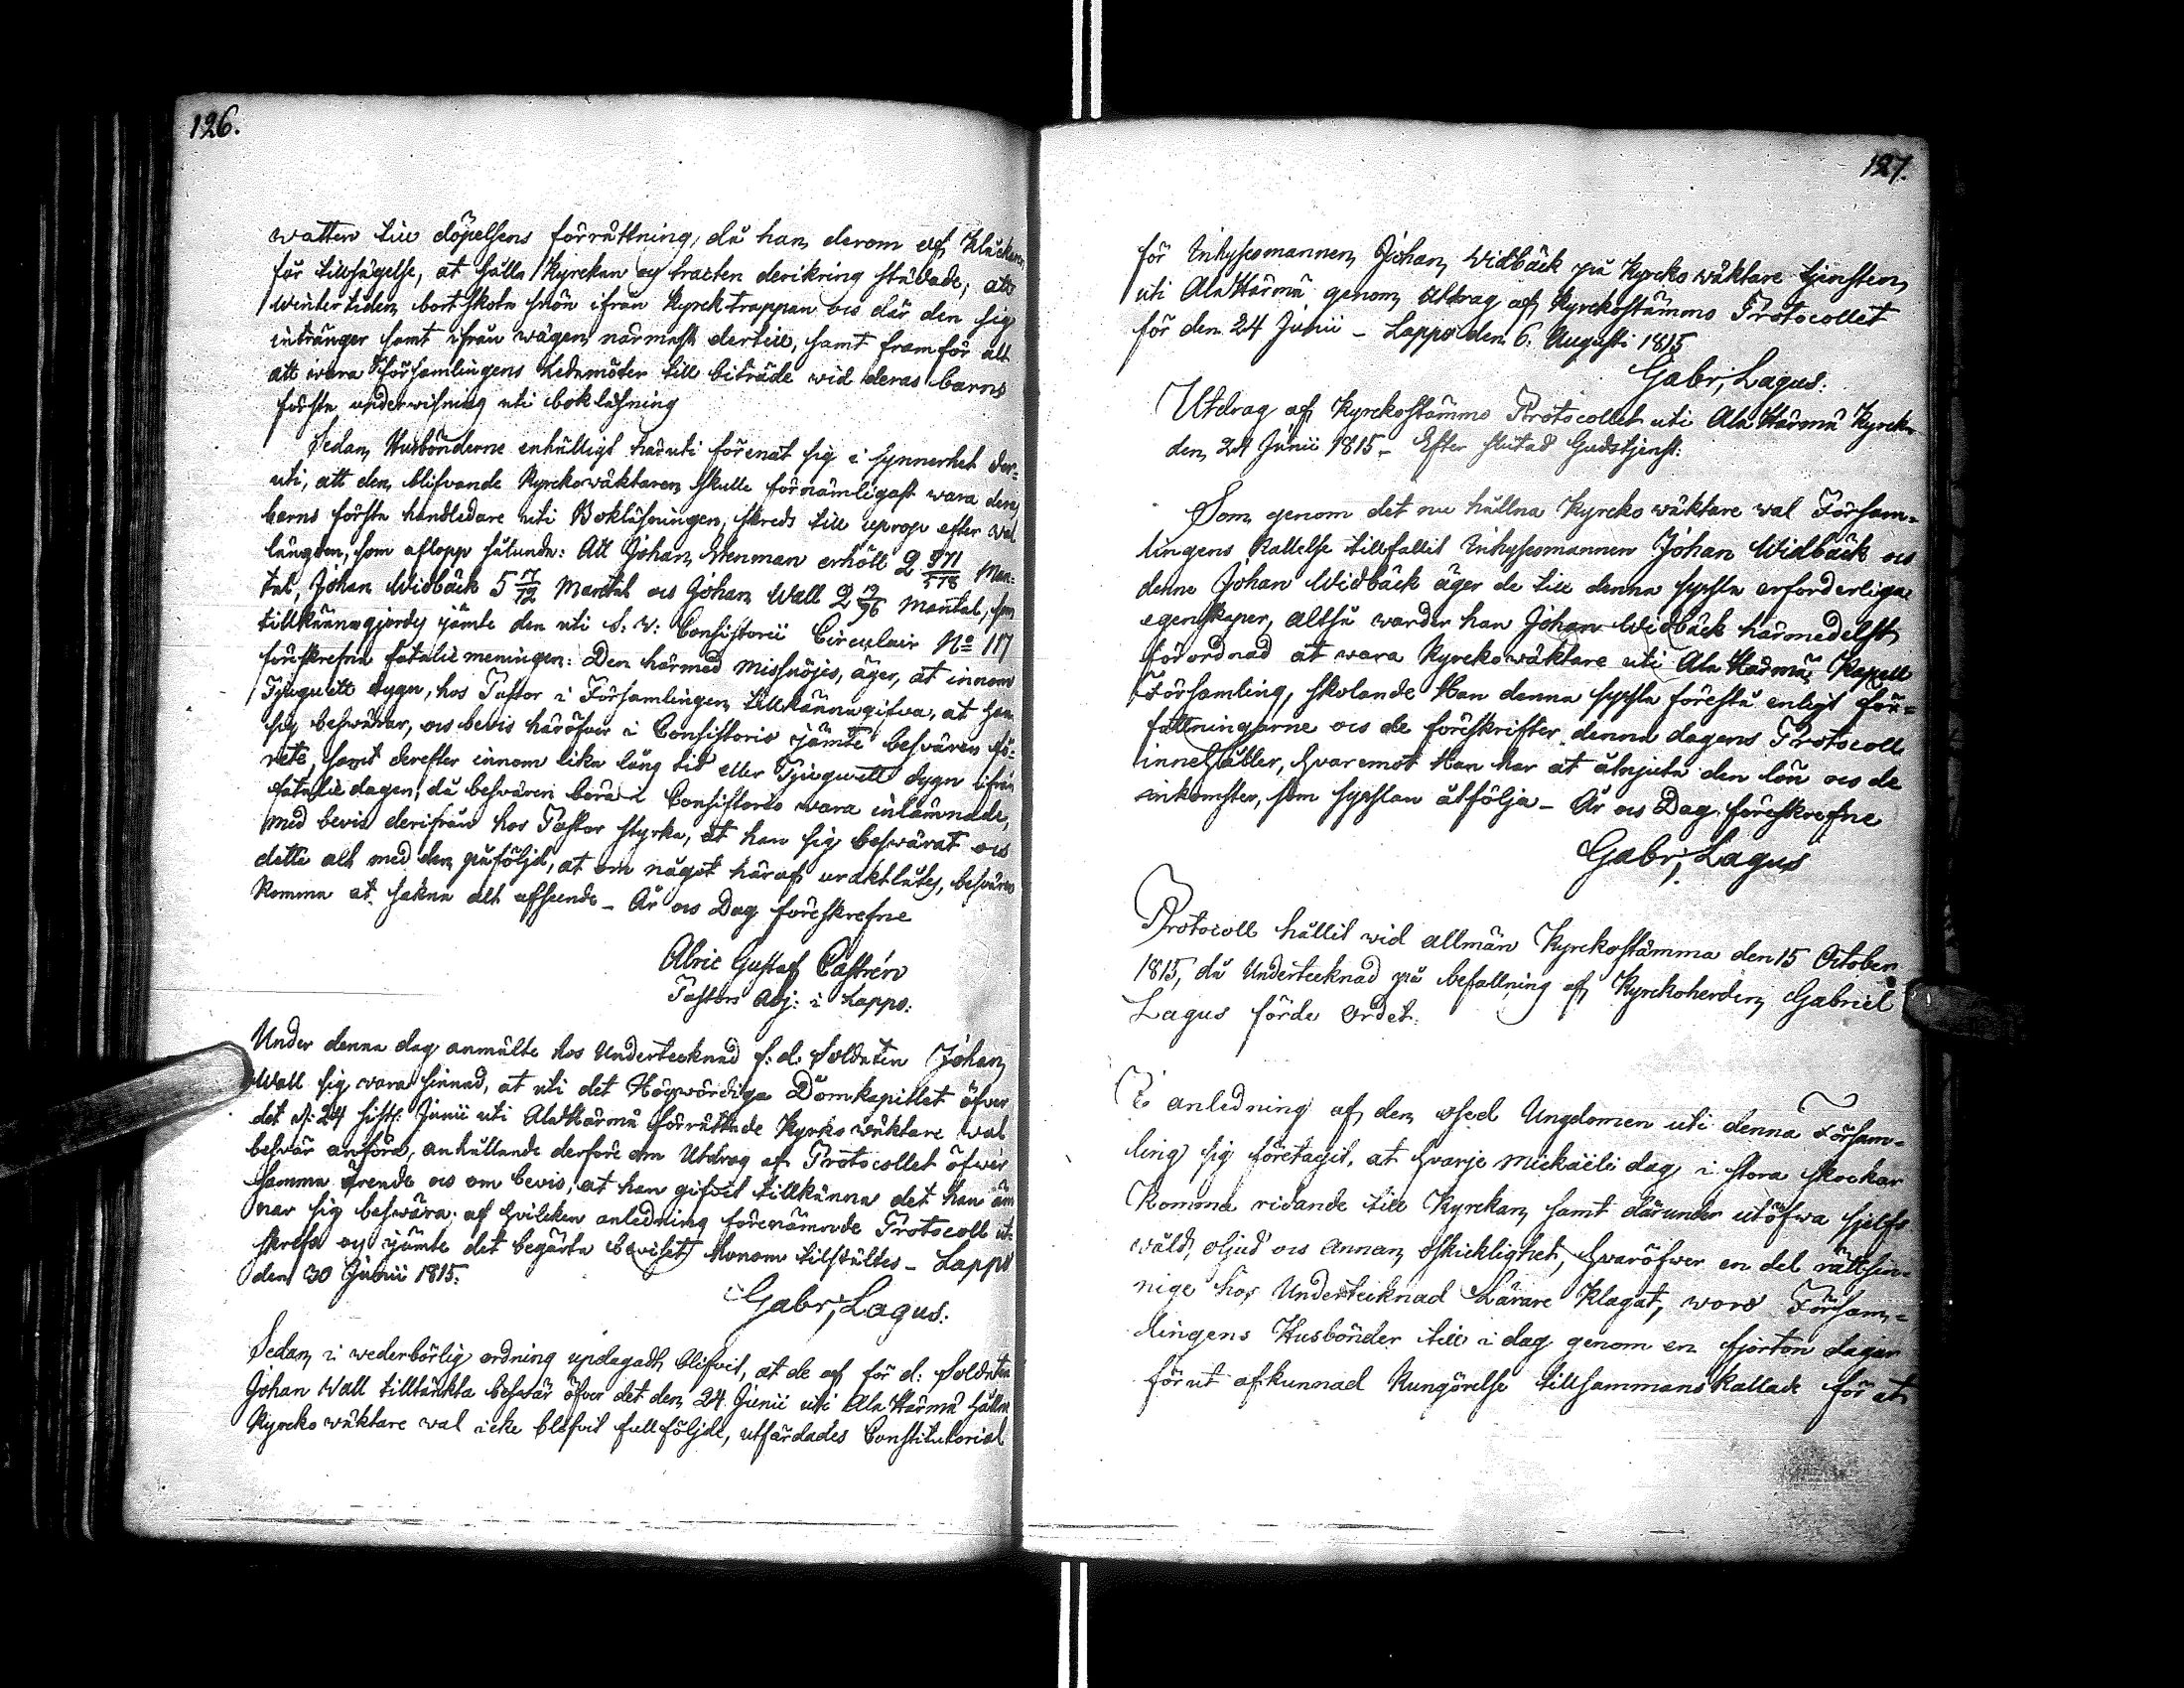 126.
watten till döpelsens förrättning, då han derom af Klåckaren
får tillsägelse, at hålla Kyrckan och tracten derikring städade, att
wintertiden bort skota snön ifrån Kyrcktrappan ocs där den sig
intränger samt ifrån wägen närmast dertill, samt framför alt
att wara Församlingens Ledamöter till biträde wid deras barns
första underwisning uti bokläsning
Sedan Husbönderne enhälligt häruti förenat sig i synnerhet der-
uti, att den blifvande Kyrckowäktaren skulle förnämligast wara deras
barns första handledare uti Bokläsningen, skreds till uprop efter wal
längden, som aflopp sålunda: Att Johan Stenman erhöll 2 Man-
tal, Johan Widbäck 5 7/12 Mantal ocs Johan Wall 2 Mantal, som
tillkännagjordes jämte den uti S: W: Consistorii Circulair No 117
föreskrefne fatalie meningen: Den härmed missnöjes, äger, at innom
Tjuguett dygn, hos Pastor i Församlingen tillkännagifva, at han
sig beswärar, ocs bevis häröfver i Consistorio jämte besvären fö-
rete, samt derefter innom lika lång tid eller Tjuguett dygn ifrån
fatalie dagen, då besvären böra i Consistorio vara inlämnade,
med bevis derifrån hos Pastor styrka, at han sig beswärat ocs
dette alt med den påföljd, at om något häraf uraktlåtes, besvären
komma at sakna alt afseende – År ocs Dag föreskrefne
Alric Gustaf Castrén
Pastors Adj: i Lappo:
Under denna dag anmälte hos Undertecknad f: d: Soldaten Johan
Wall sig wara sinnad, at uti det Högwördiga Domkapitlet öfver
det d: 24 sistl: Junii uti AlaHärmä förrättade Kyrko wäktare wal
besvär anföra, anhållande derföre om Utdrag af Protocollet öfwer
samma ärende ocs om bevis, at han gifvit tillkänna det han äm
nar sig beswära; af hvilcken anledning förenämnde Protocoll ut-
skrefs och jämte det begärta beviset honom tilstältes – Lappo
den 30 Junii 1815.
Gabr; Lagus.
Sedan i wederbörlig ordning updagadt blifvit, at de af för d: Soldaten
Johan Wall tilltänkta beswär öfver det den 24 Junii uti Ala Härmä hålln
Kyrcko wäktare wal icke blifvit fullföljde, utfärdades Constitutorial
127.
för Inhysesmannen Johan Widbäck på Kyrcko wäktare tjensten
uti AlaHärmä genom Utdrag af Kyrckostämmo Protocollet
för den 24 Junii – Lappo den 6. Augusti 1815
Gabr; Lagus.
Utdrag af Kyrckostämmo Protocollet uti Ala Härmä Kyrcko
den 24 Junii 1815 – Efter slutad Gudstjenst.
Som genom det nu hållna Kyrcko wäktare wal Försam-
lingens kallelse tillfallit Inhysesmannen Johan Widbäck ocs
denne Johan Widbäck äger de till denna syssla erforderliga
egenskaper, altså warder han Johan Widbäck härmedelst
förordnad at wara Kyrckowäktare uti Ala Härmä Kapell
Församling, skolande Han denna syssla förestå enligt för-
fattningarne ocs de föreskrifter denna dagens Protocoll
innehåller, hvaremot Han har at åtnjuta den lön ocs de
inkomster, som sysslan åtfölja – År ocs Dag föreskrefne
Gabr; Lagus
Protocoll hållit wid allmän Kyrckostämma den 15 October
1815, då Undertecknad på befallning af Kyrckoherden Gabriel
Lagus förde ordet.
I anledning af den osed Ungdomen uti denna Försam-
ling sig företagit, at hvarje Mickaëli dag i stora skockar
komma ridande till Kyrckan samt därunder utöfwa sjelfs
wåld, oljud ocs annan oskicklighet, hvaröfwer en del rättsin-
nige hos Undertecknad Lärare klagat, woro Försam-
lingens Husbönder till i dag genom en fjorton dagar
förut afkunnad kungörelse tillsammanskallade för at